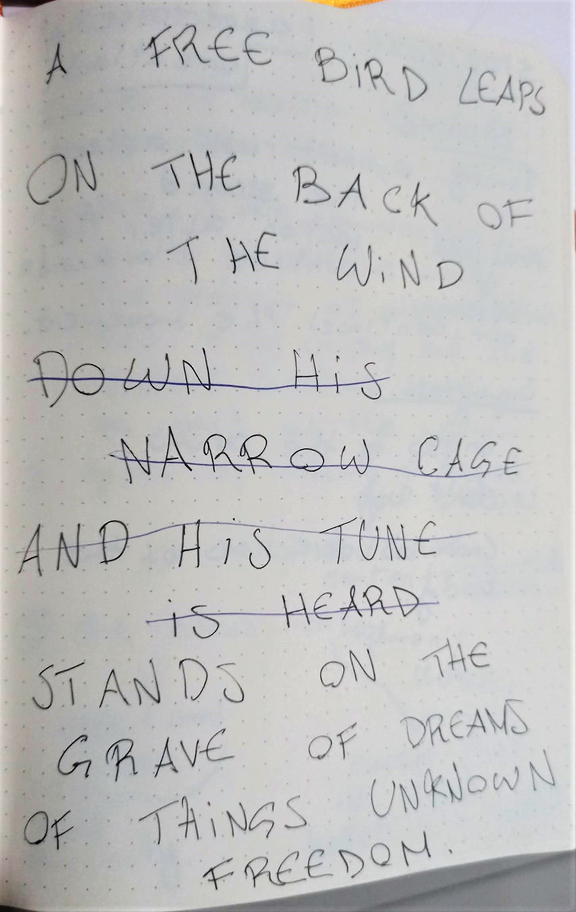 A FREE BIRD LEAPS
ON THE BACK OF
THE WIND
DOWN HIS
NARROW CAGE
AND HIS TUNE
IS HEARD
STANDS ON THE
GRAVE OF DREAMS
OF THINGS UNKNOWN
FREEDOM.